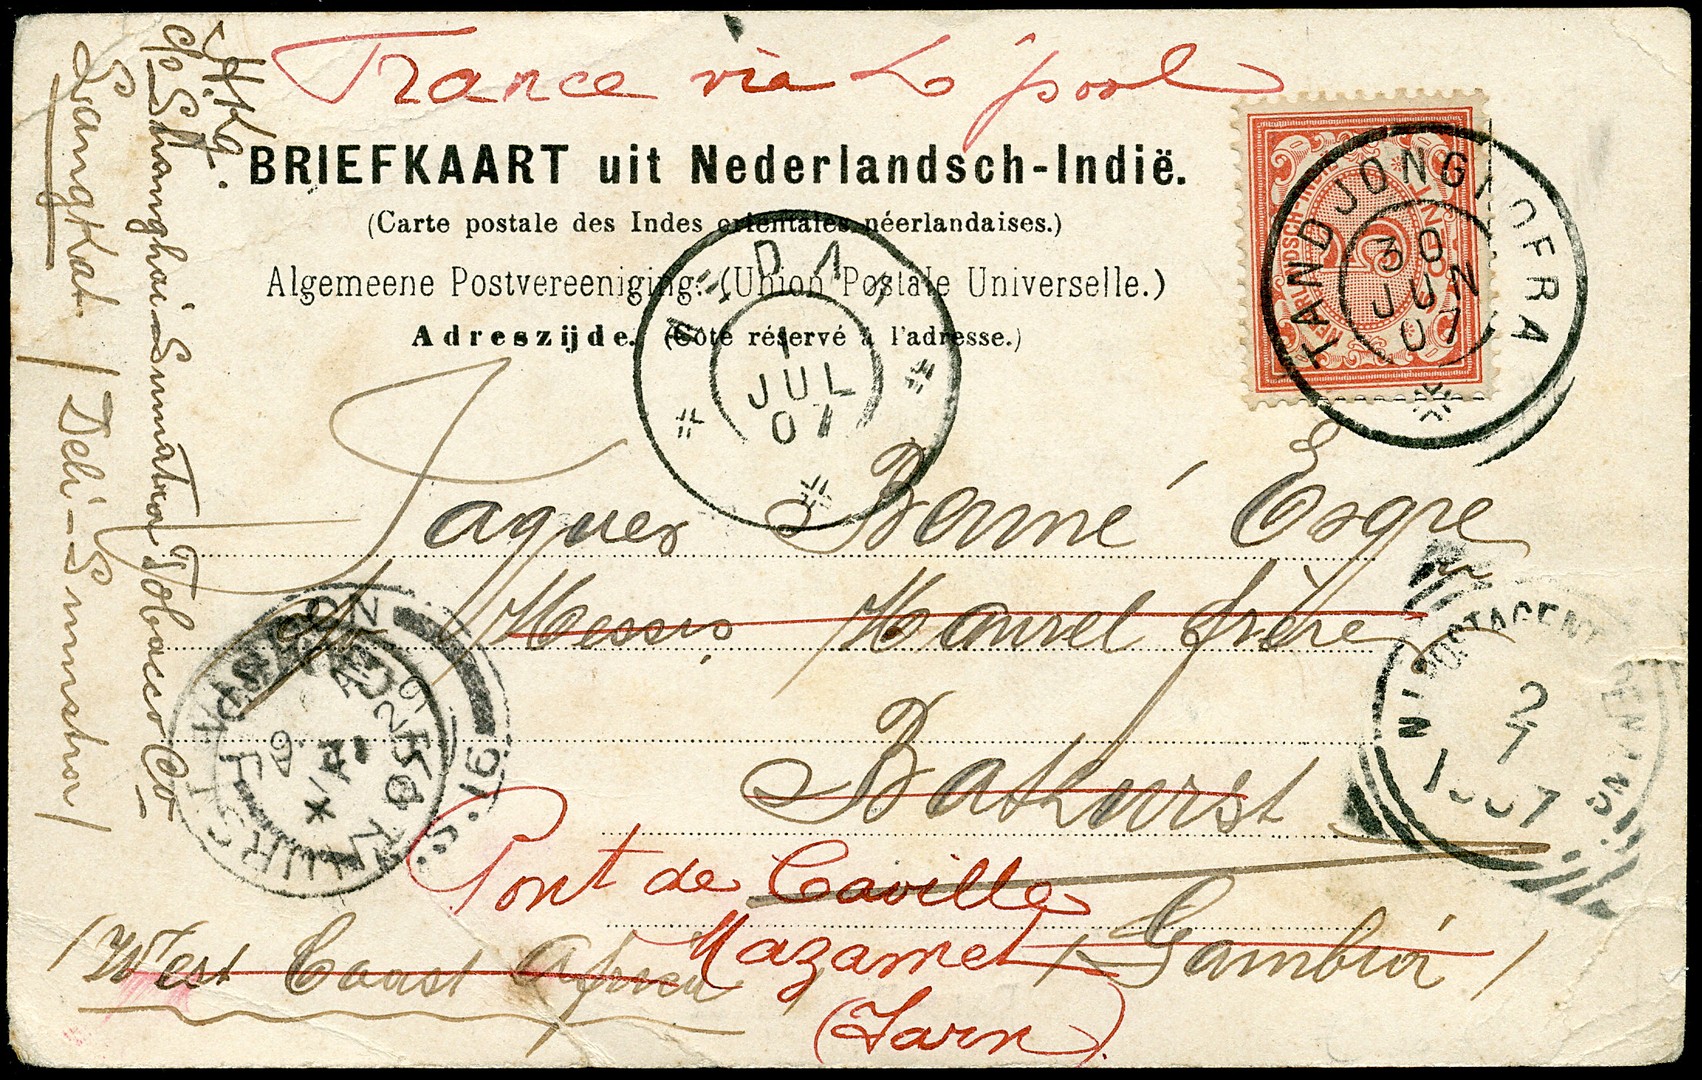 France via L'pool
BRIEFKAART uit Nederlandsch-Indië.
(Carte postale des Indes orientales néerlandaises.)
Algemeene Postvereeniging. (Union Postale Universelle.)
Adreszijde. (Côté réservé à l'adresse.)
NEDERLANDSCH-INDIË
5 CENT
TANDJONG
30
JUN
07
1
JUL
07
Jaques Esqre
Messrs Maurel frère
Bathurst
/ Gambia /
/ West Coast Africa
Pont de
Mazamet
(Tarn)
c/o Shanghai-Sumatra Tobacco Co
Langkat / Deli-Sumatra /
N.I. POSTAGENT PENANG
2
7
1907
LONDON